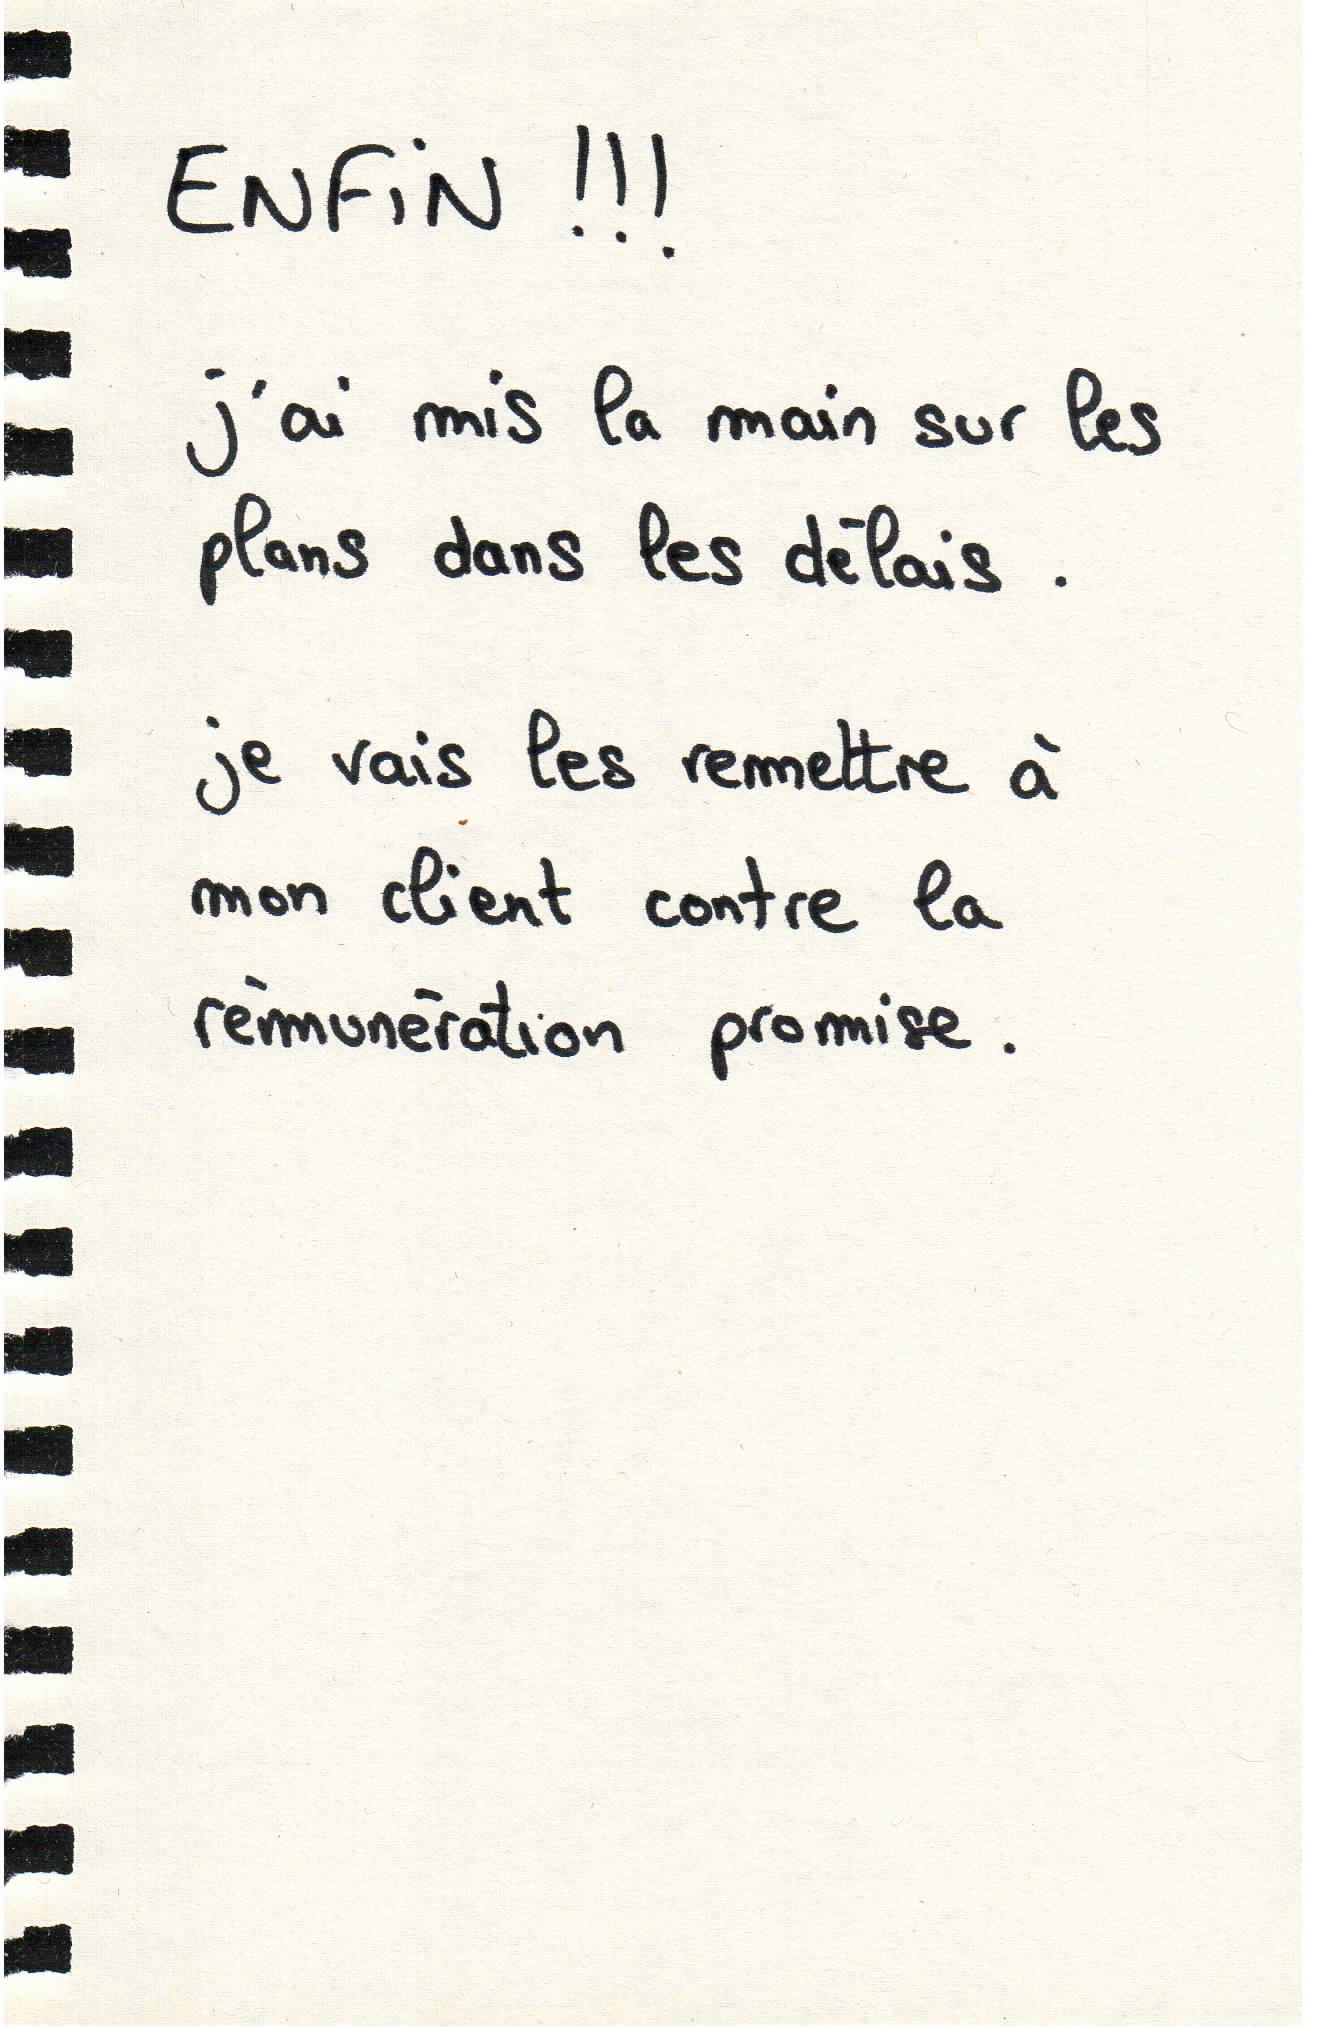 ENFiN !!!
j'ai mis la main sur les
plans dans les délais .
je vais les remettre à
mon client contre la
rémunération promise .